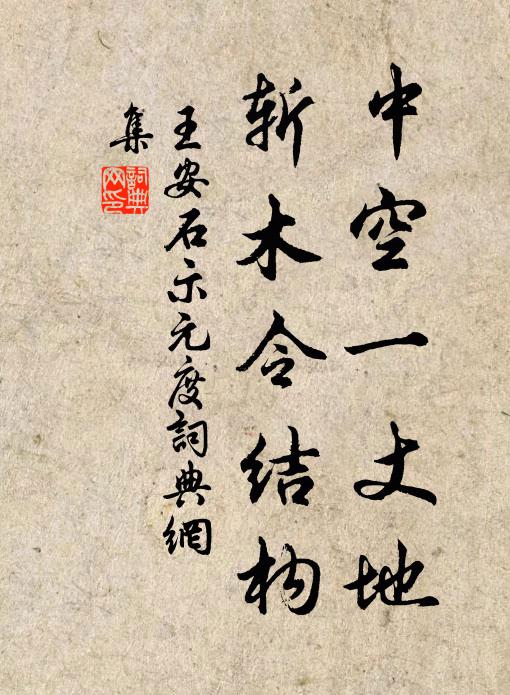 中空一丈地
斩木令结构
王安石示元度詞典網
集
詞典
网印